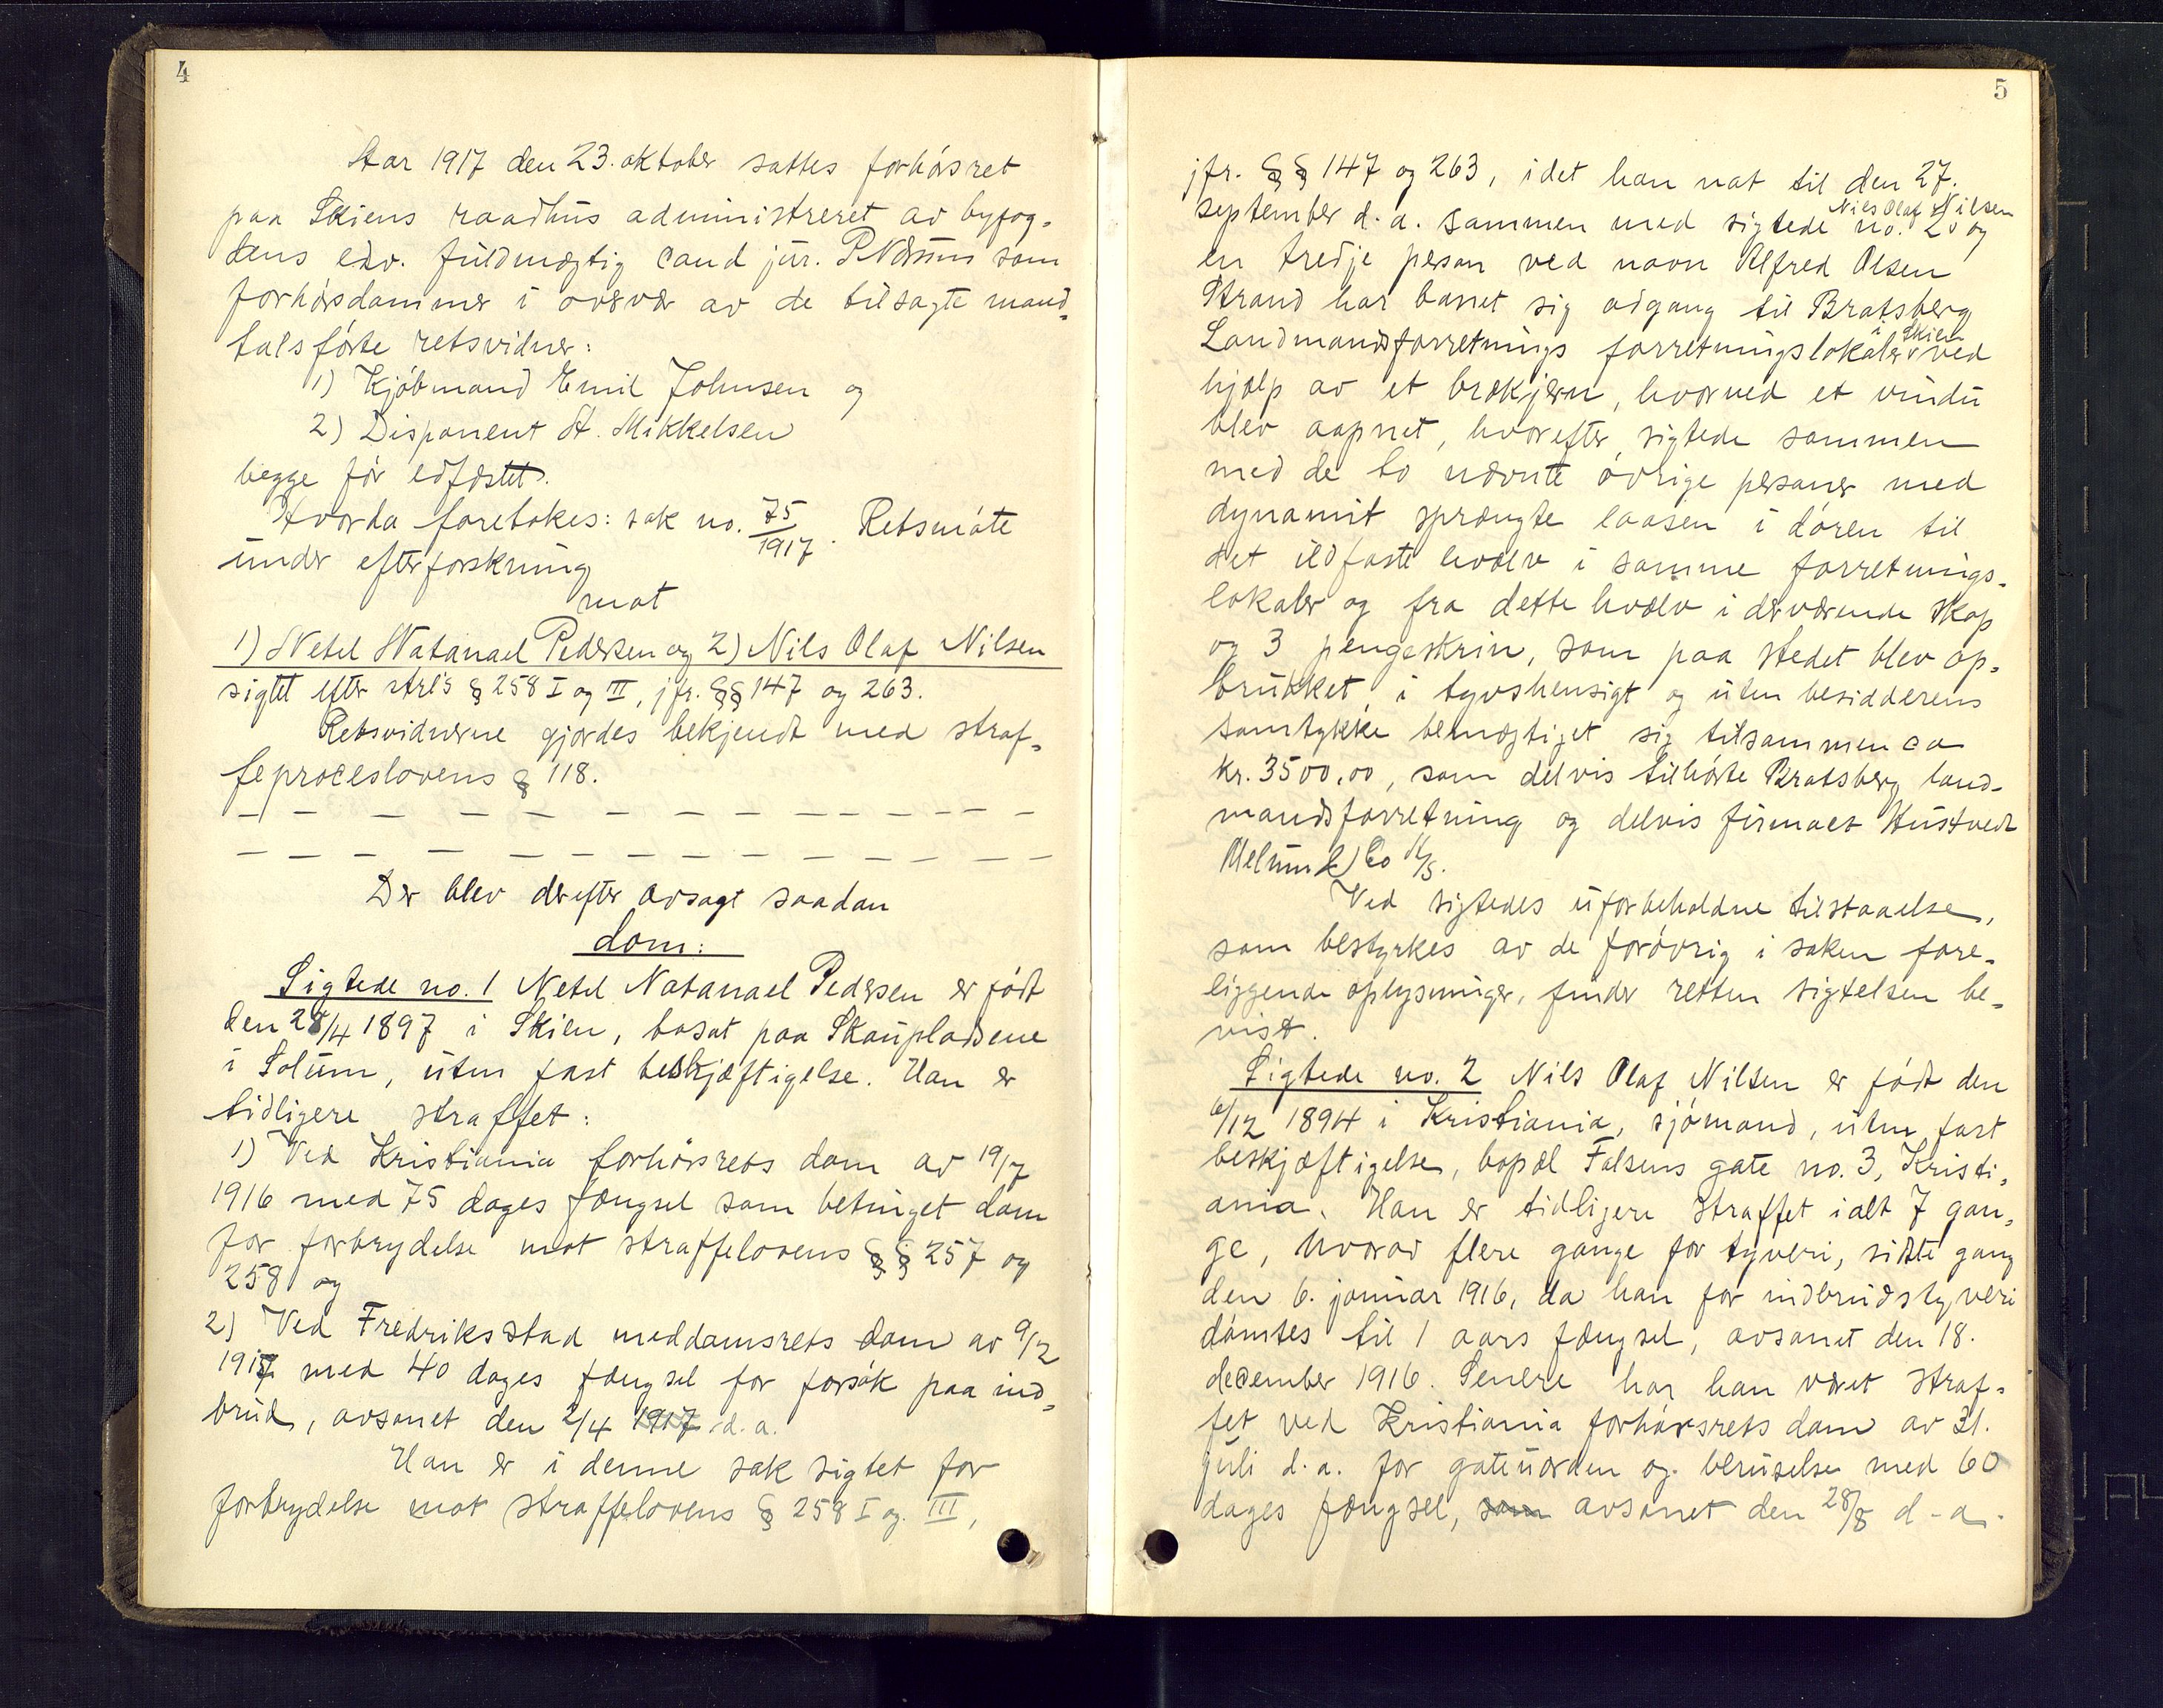 4
Aar 1917 den 23. oktober sattes forhørsret
paa Skiens raadhus administreret av byfog-
dens edv. fuldmægtig cand jur. P Næsms som
forhørsdommer i overvær av de tilsagte mand-
talsførte retsvidner:
1) Kjøbmand Emil Johnsen og
2) Disponent A. Mikkelsen
begge før edfæstet.
Hvorda foretokes: sak no. 75/1917. Retsmøte
under efterforskning
mot
1) Netel Natanael Pedersen og 2) Nils Olaf Nilsen
sigtet efter strl's § 258 I og III, jfr. §§ 147 og 263.
Retsvidnerne gjordes bekjendt med straf-
feproceslovens § 118.
— — — — — — — — — — — — —
— — — — — — — — — — — — —
Der blev derefter avsagt saadan
dom:
Sigtede no. 1 Netel Natanael Pedersen er født
den 28/4 1897 i Skien, bosat paa Skaupladsene
i Solum, uten fast beskjæftigelse. Han er
tidligere straffet:
1) Ved Kristiania forhørsrets dom av 19/7
1916 med 75 dages fængsel som betinget dom
for forbrydelse mot straffelovens §§ 257 og
258 og
2) Ved Fredriksstad meddomsrets dom av 9/2
1917 med 40 dages fængsel for forsøk paa ind-
brud, avsonet den 2/4 1917 d. a.
Han er i denne sak sigtet for
forbrydelse mot straffelovens § 258 I og III,
5
jfr. §§ 147 og 263, idet han nat til den 27.
september d. a. sammen med sigtede no. 2 Nils Olaf Nilsen og
en tredje person ved navn Alfred Olsen
Strand har banet sig adgang til Bratsberg
Landmandsforretnings forretningslokaler i Skien ved
hjælp av et brækjern, hvorved et vindu
blev aapnet, hvorefter sigtede sammen
med de to nævnte øvrige personer med
dynamit sprængte laasen i døren til
det ildfaste hvælv i samme forretnings-
lokaler og fra dette hvælv i derværende skap
og 3 pengeskrin, som paa stedet blev op-
brukket, i tyvshensigt og uten besidderens
samtykke bemægtiget sig tilsammen ca
kr. 3500,00, som delvis tilhørte Bratsberg land-
mandsforretning og delvis firmaet Hustvedt
Melum & Co A/S.
Ved sigtedes uforbeholdne tilstaaelse,
som bestyrkes av de forøvrig i saken fore-
liggende oplysninger, finder retten sigtelsen be-
vist.
Sigtede no. 2 Nils Olaf Nilsen er født den
6/12 1894 i Kristiania, sjømand, uten fast
beskjæftigelse, bopæl Falsens gate no. 3, Kristi-
ania. Han er tidligere straffet ialt 7 gan-
ge, hvorav flere gange for tyveri, sidste gang
den 6. januar 1916, da han for indbrudstyveri
dømtes til 1 aars fængsel, avsonet den 18.
december 1916. Senere har han været straf-
fet ved Kristiania forhørsrets dom av 31.
juli d. a. for gateuorden og beruselse med 60
dages fængsel, som avsonet den 28/8 d. a.